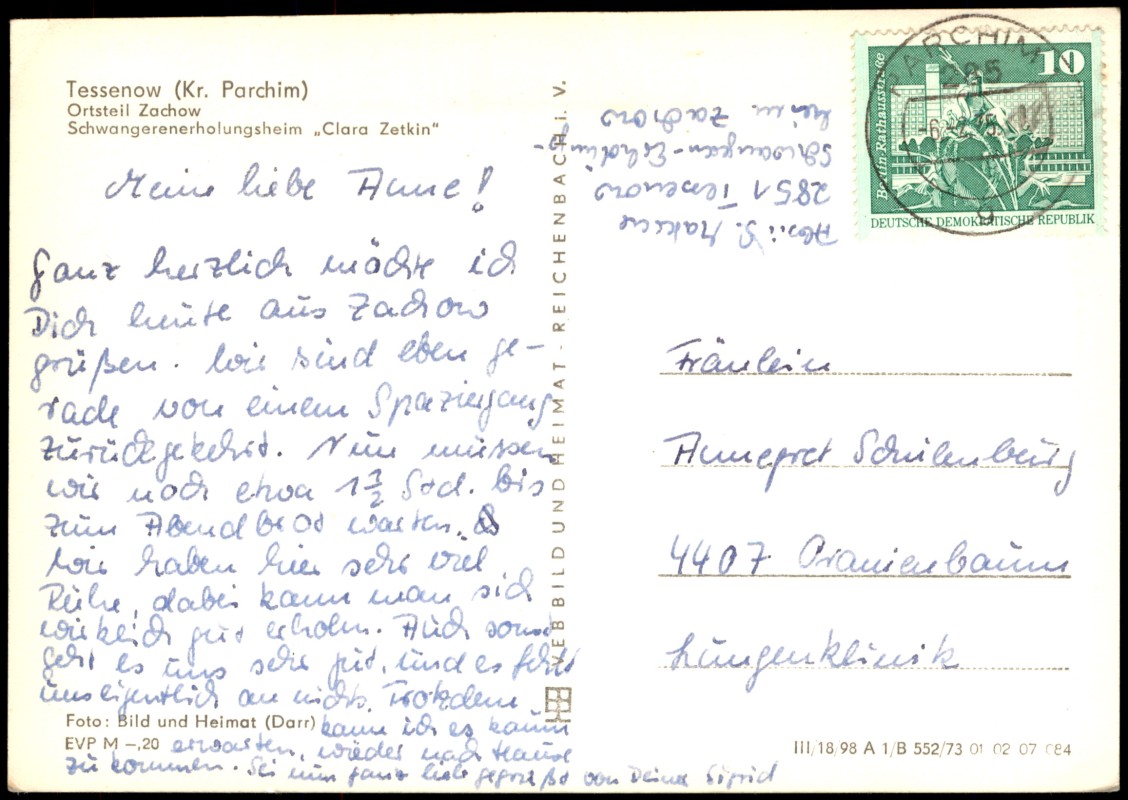 Tessenow (Kr. Parchim)
Ortsteil Zachow
Schwangerenerholungsheim „Clara Zetkin“
Meine liebe Anne!
Ganz herzlich möchte ich
Dich heute aus Zachow
grüßen. Wir sind eben ge-
rade von einem Spaziergang
zurückgekehrt. Nun müssen
wir noch etwa 1 1/2 Std. bis
zum Abendbrot warten.
Wir haben hier sehr viel
Ruhe, dabei kann man sich
wirklich gut erholen. Auch sonst
geht es uns sehr gut, und es fehlt
uns eigentlich an nichts. Trotzdem
kann ich es kaum
erwarten, wieder nach Hause
zu kommen. Sei nun ganz lieb gegrüßt von Deiner Sigrid
Foto: Bild und Heimat (Darr)
EVP M –,20
VEB BILD UND HEIMAT · REICHENBACH i. V.
Abs.: S.
2851 Tessenow
Schwangeren-Erholungs-
heim Zachow
PARCHIM
285
10
Berlin-Rathausstraße
DEUTSCHE DEMOKRATISCHE REPUBLIK
Fräulein
Annegret Schulenburg
4407 Oranienbaum
Lungenklinik
III/18/98 A 1/B 552/73 01 02 07 084